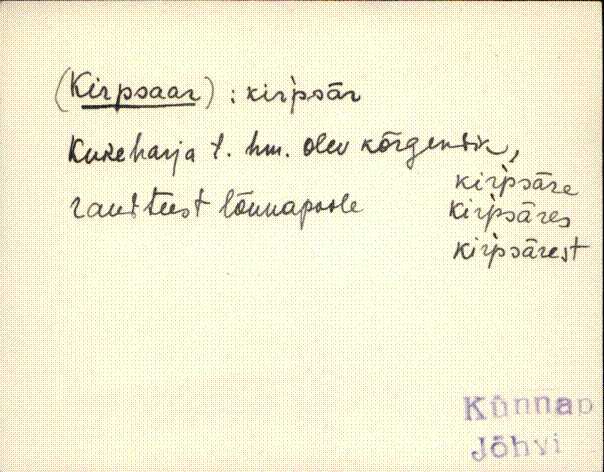 (Kirpsaar) : kir̀psār
Kukeharja t. hm. olev kõrgendik,
raudteest lõunapoole
kir̀psāre
kir̀psāres
kir̀psārest
Künnap
Jõhvi